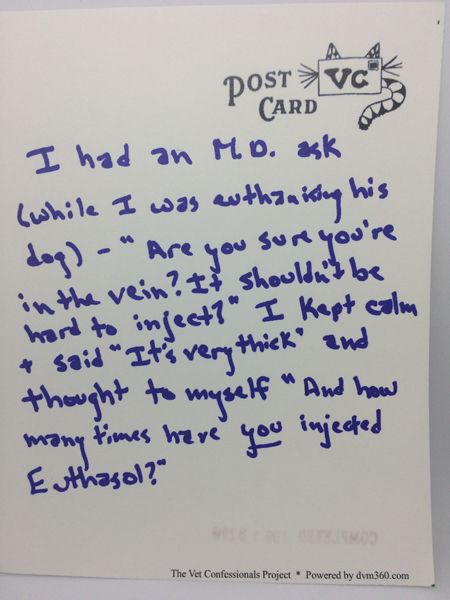 POST
CARD
VC
I had an M.D. ask
(while I was euthanizing his
dog) - "Are you sure you're
in the vein? It shouldn't be
hard to inject?" I kept calm
+ said "It's very thick" and
thought to myself "And how
many times have you injected
Euthasol?"
The Vet Confessionals Project * Powered by dvm360.com